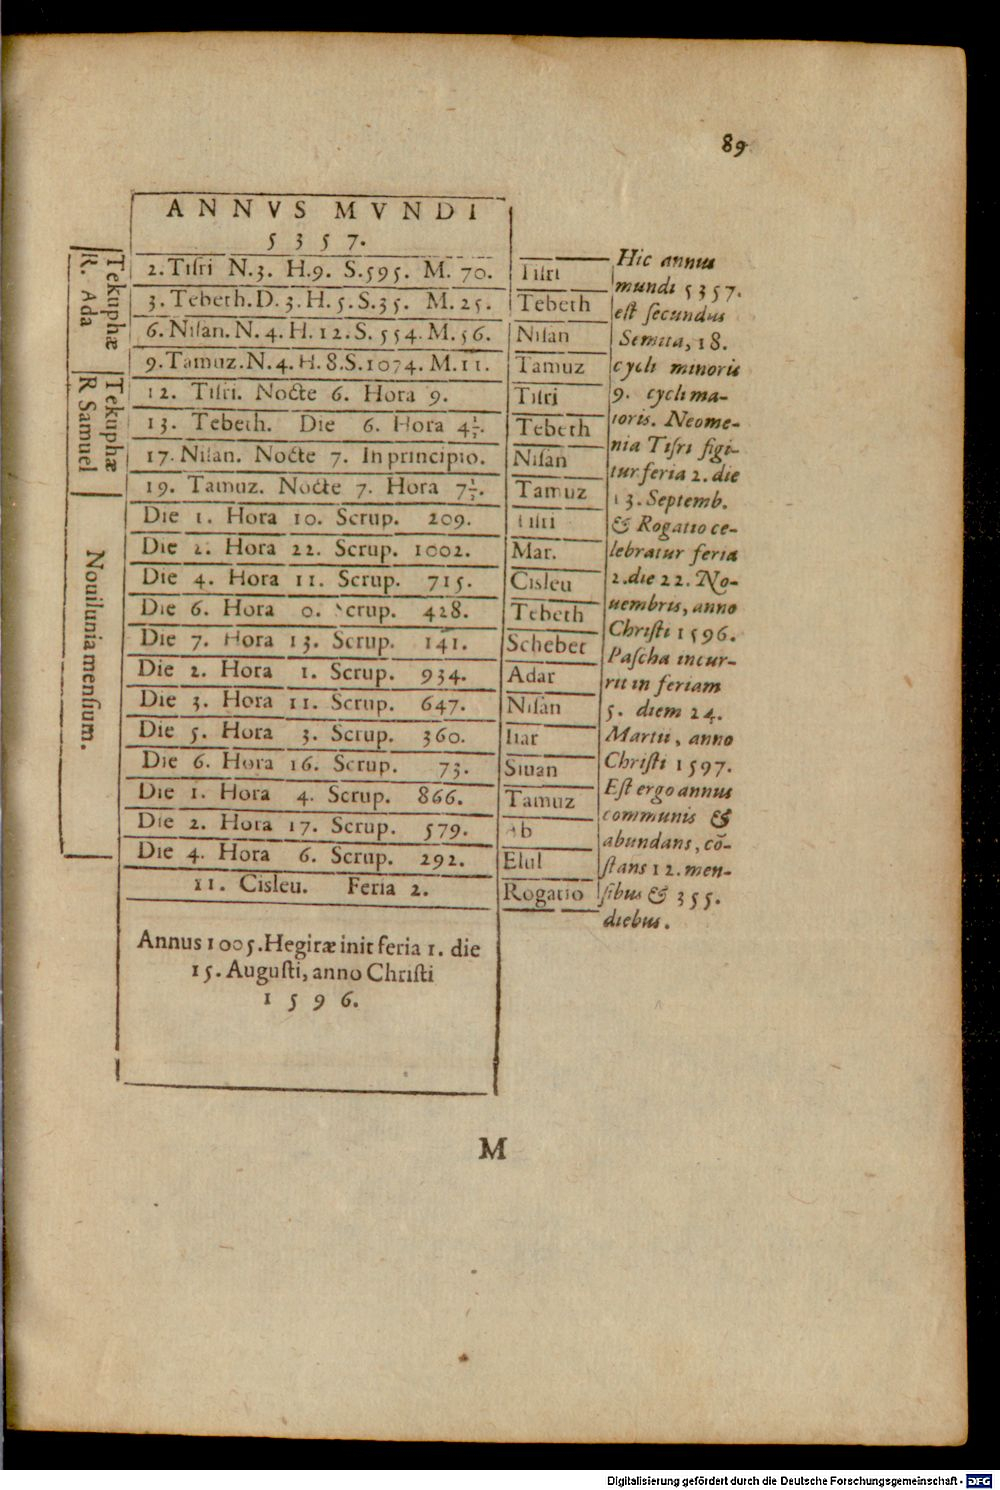 89
ANNVS MVNDI
5 3 5 7.
Tekuphæ
R. Ada
2. Tiſri N.3. H.9. S.595. M. 70. Tiſri
3. Tebeth. D. 3. H. 5. S. 35. M. 25. Tebeth
6. Niſan. N. 4. H. 12. S. 554. M. 56. Niſan
9. Tamuz. N. 4. H. 8. S. 1074. M. 11. Tamuz
Tekuphæ
R Samuel
12. Tiſri. Nocte 6. Hora 9. Tiſri
13. Tebeth. Die 6. Hora 4½. Tebeth
17. Niſan. Nocte 7. In principio. Niſan
19. Tamuz. Nocte 7. Hora 7½. Tamuz
Nouilunia menſium.
Die 1. Hora 10. Scrup. 209. Tiſri
Die 2. Hora 22. Scrup. 1002. Mar.
Die 4. Hora 11. Scrup. 715. Ciſleu
Die 6. Hora 0. Scrup. 428. Tebeth
Die 7. Hora 13. Scrup. 141. Schebet
Die 2. Hora 1. Scrup. 934. Adar
Die 3. Hora 11. Scrup. 647. Niſan
Die 5. Hora 3. Scrup. 360. Iiar
Die 6. Hora 16. Scrup. 73. Siuan
Die 1. Hora 4. Scrup. 866. Tamuz
Die 2. Hora 17. Scrup. 579. Ab
Die 4. Hora 6. Scrup. 292. Elul
11. Ciſleu. Feria 2. Rogatio
Annus 1005. Hegiræ init feria 1. die
15. Auguſti, anno Chriſti
1 5 9 6.
Hic annus
mundi 5357.
eſt ſecundus
Semita, 18.
cycli minoris
9. cycli ma-
ioris. Neome-
nia Tiſri figi-
tur feria 2. die
13. Septemb.
& Rogatio ce-
lebratur feria
2. die 22. No-
uembris, anno
Chriſti 1596.
Paſcha incur-
rit in feriam
5. diem 24.
Martii, anno
Chriſti 1597.
Eſt ergo annus
communis &
abundans, cõ-
ſtans 12. men-
ſibus & 355.
diebus.
M
Digitalisierung gefördert durch die Deutsche Forschungsgemeinschaft - DFG